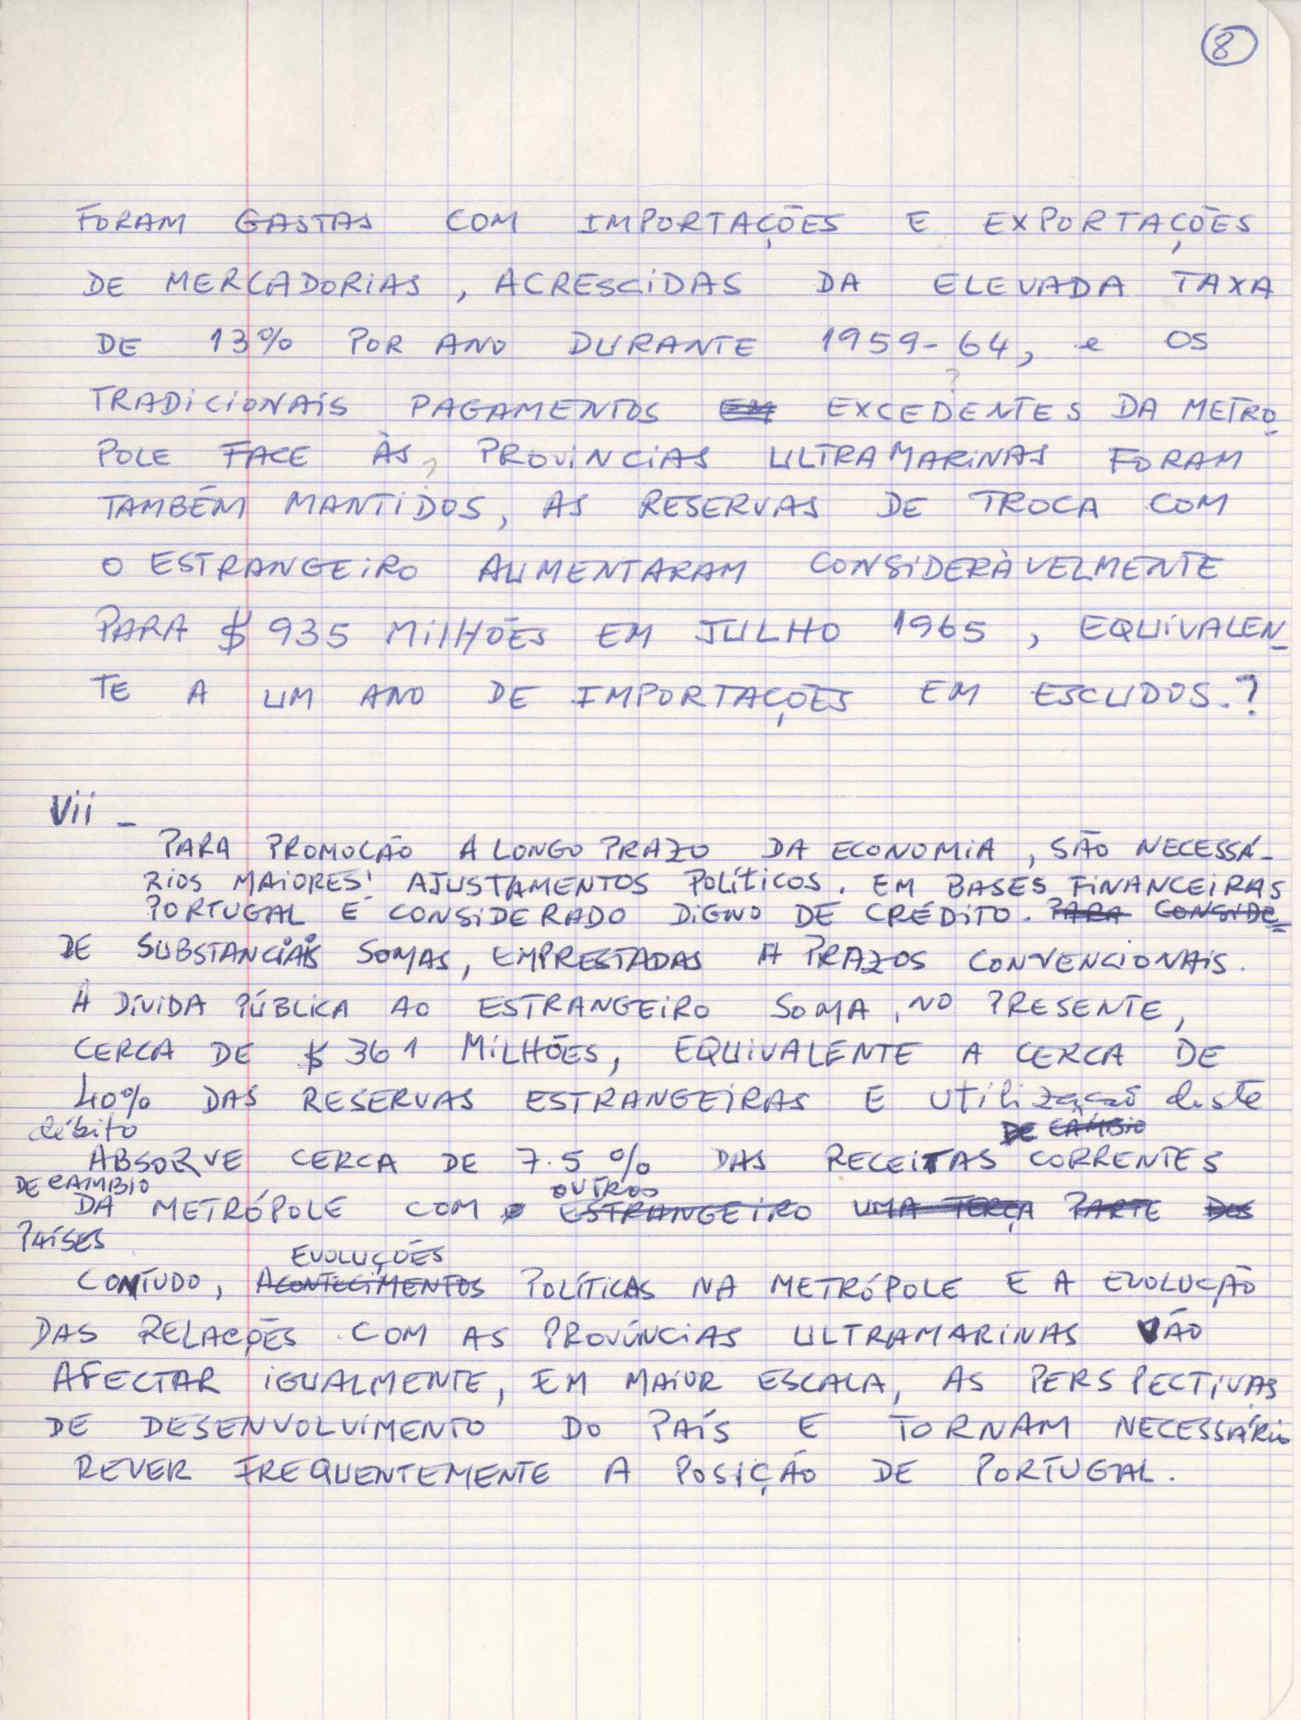 8
FORAM GASTAS COM IMPORTAÇÕES E EXPORTAÇÕES
DE MERCADORIAS, ACRESCIDAS DA ELEVADA TAXA
DE 13% POR ANO DURANTE 1959-64, e OS
?
TRADICIONAIS PAGAMENTOS EM EXCEDENTES DA METRO
POLE FACE ÀS ? PROVINCIAS ULTRAMARINAS FORAM
TAMBÉM MANTIDOS, AS RESERVAS DE TROCA COM
O ESTRANGEIRO AUMENTARAM CONSIDERÀVELMENTE
PARA $ 935 MILHÕES EM JULHO 1965, EQUIVALEN
TE A UM ANO DE IMPORTAÇÕES EM ESCUDOS.?
Vii -
PARA PROMOÇÃO A LONGO PRAZO DA ECONOMIA, SÃO NECESSÁ-
RIOS MAIORES AJUSTAMENTOS POLÍTICOS. EM BASES FINANCEIRAS
PORTUGAL É CONSIDERADO DIGNO DE CRÉDITO. PARA CONSIDE
DE SUBSTANCIAIS SOMAS, EMPRESTADAS A PRAZOS CONVENCIONAIS.
A DÍVIDA PÚBLICA AO ESTRANGEIRO SOMA, NO PRESENTE,
CERCA DE $ 361 MILHÕES, EQUIVALENTE A CERCA DE
40% DAS RESERVAS ESTRANGEIRAS E utilização deste
débito
DE CAMBIO
ABSORVE CERCA DE 7.5 % DAS RECEITAS CORRENTES
DE CAMBIO
OUTROS
DA METRÓPOLE COM O ESTRANGEIRO UMA TERÇA PARTE DOS
PAÍSES
EVOLUÇÕES
CONTUDO, ACONTECIMENTOS POLÍTICAS NA METRÓPOLE E A EVOLUÇÃO
DAS RELAÇÕES COM AS PROVÍNCIAS ULTRAMARINAS VÃO
AFECTAR IGUALMENTE, EM MAIOR ESCALA, AS PERSPECTIVAS
DE DESENVOLVIMENTO DO PAÍS E TORNAM NECESSÁRIO
REVER FREQUENTEMENTE A POSIÇÃO DE PORTUGAL.